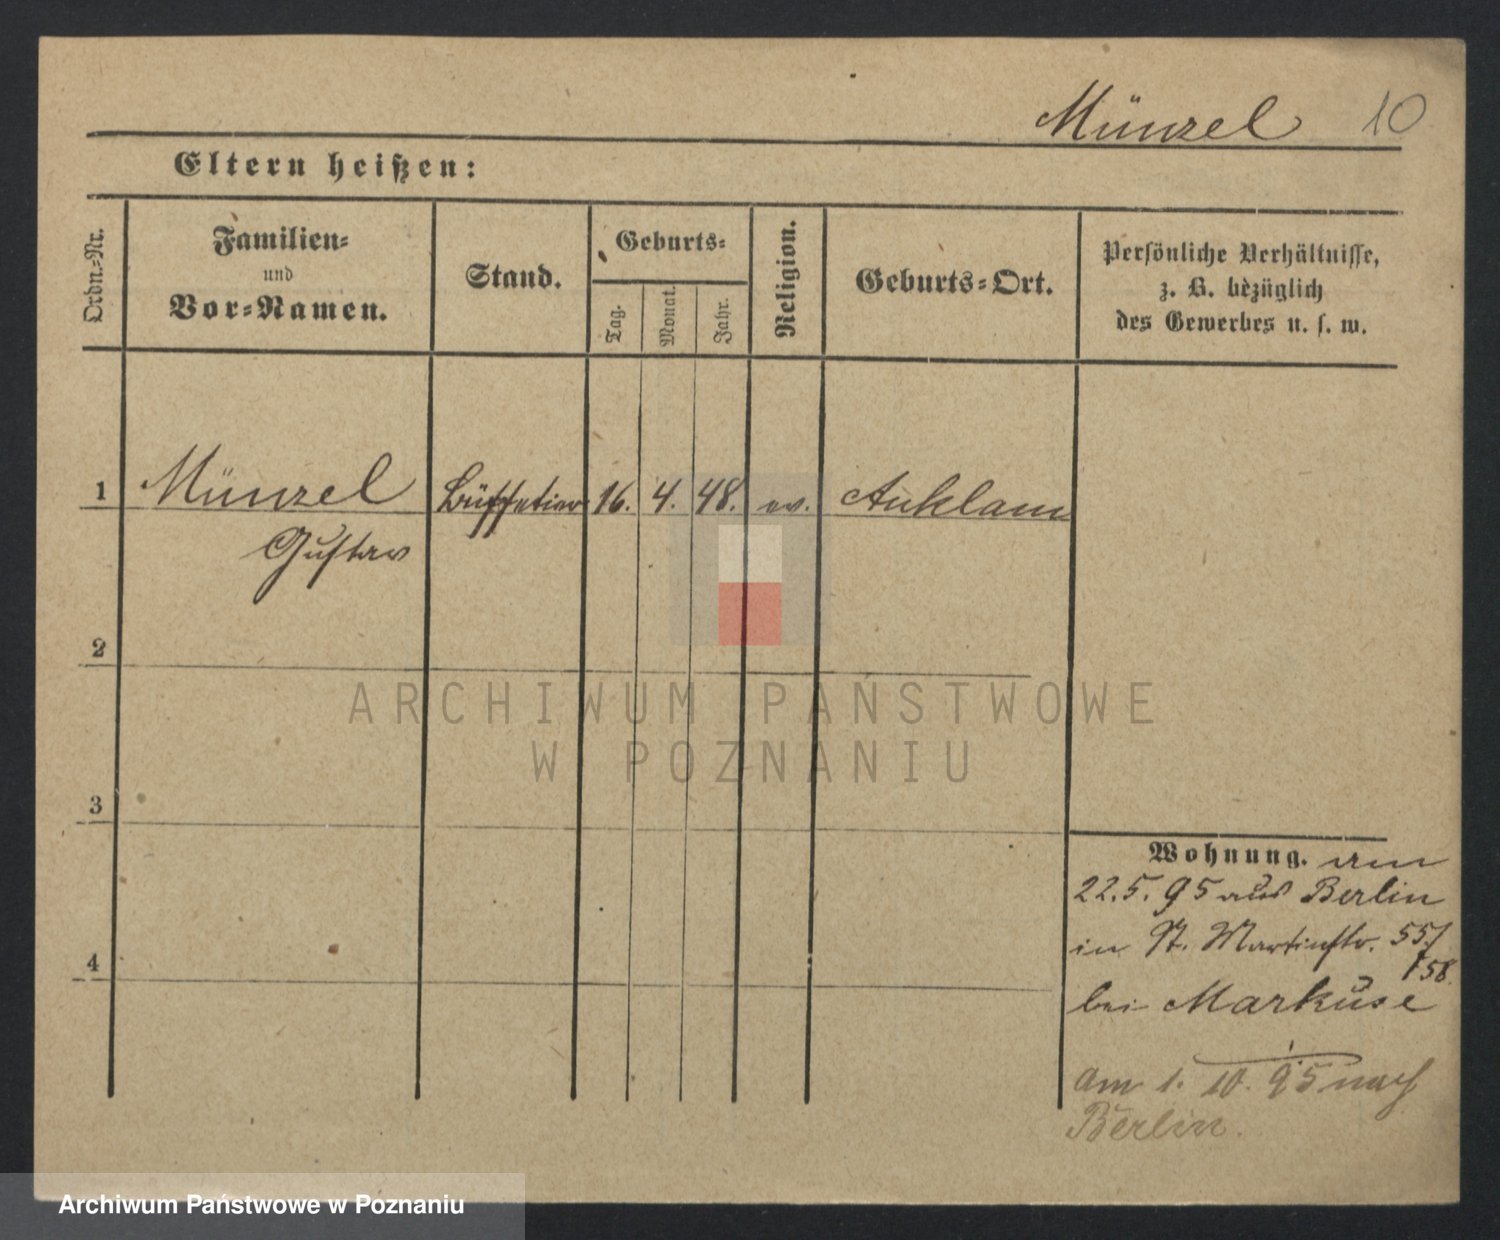 Münzel 10
Eltern heißen:
Ordn.-Nr.
Familien-
und
Vor-Namen.
Stand.
Geburts-
Tag.
Monat.
Jahr.
Religion.
Geburts-Ort.
Persönliche Verhältnisse,
z. B. bezüglich
des Gewerbes u. s. w.
1 Münzel Büffetier 16. 4. 48. ev. Anklam
Gustav
2
3
4
Wohnung. am
22.5.95 aus Berlin
in St. Martinstr. 55/
58
bei Markuse
am 1. 10. 95 nach
Berlin.
ARCHIWUM PAŃSTWOWE
W POZNANIU
Archiwum Państwowe w Poznaniu